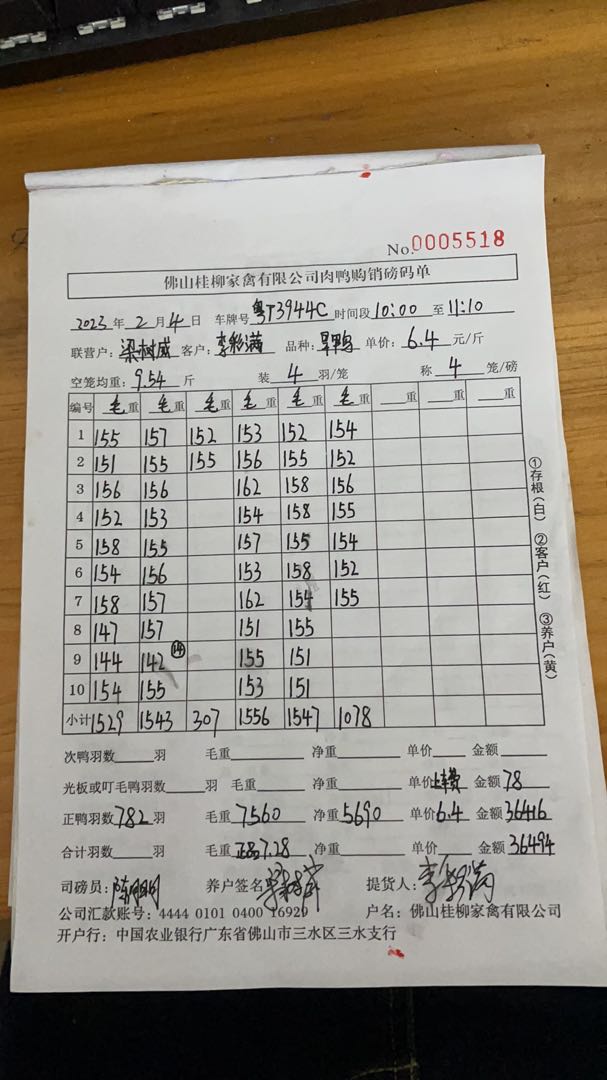 No.0005518
佛山桂柳家禽有限公司肉鸭购销磅码单
2023年2月4日 车牌号粤T3944C时间段10:00至11:10
联营户:梁树威 客户:李彩满 品种: 单价:6.4元/斤
空笼均重:9.54斤 装4羽/笼 称4笼/磅
编号 毛重 毛重 毛重 毛重 毛重 毛重 重 重 重
1 155 157 152 153 152 154
2 151 155 155 156 155 152
3 156 156 162 158 156
4 152 153 154 158 155
5 158 155 157 155 154
6 154 156 153 158 152
7 158 157 162 154 155
8 147 157 151 155
9 144 142 ⑭ 155 151
10 154 155 153 151
小计 1529 1543 307 1556 1547 1078
次鸭羽数 羽 毛重 净重 单价 金额
光板或叮毛鸭羽数 羽 毛重 净重 单价 金额78
正鸭羽数782羽 毛重7560 净重5690 单价6.4 金额36416
合计羽数 羽 毛重 7.28 净重 单价 金额36494
司磅员: 养户签名: 提货人:李彩满
公司汇款账号:4444 0101 0400 16929 户名:佛山桂柳家禽有限公司
开户行:中国农业银行广东省佛山市三水区三水支行
①存根(白) ②客户(红) ③养户(黄)